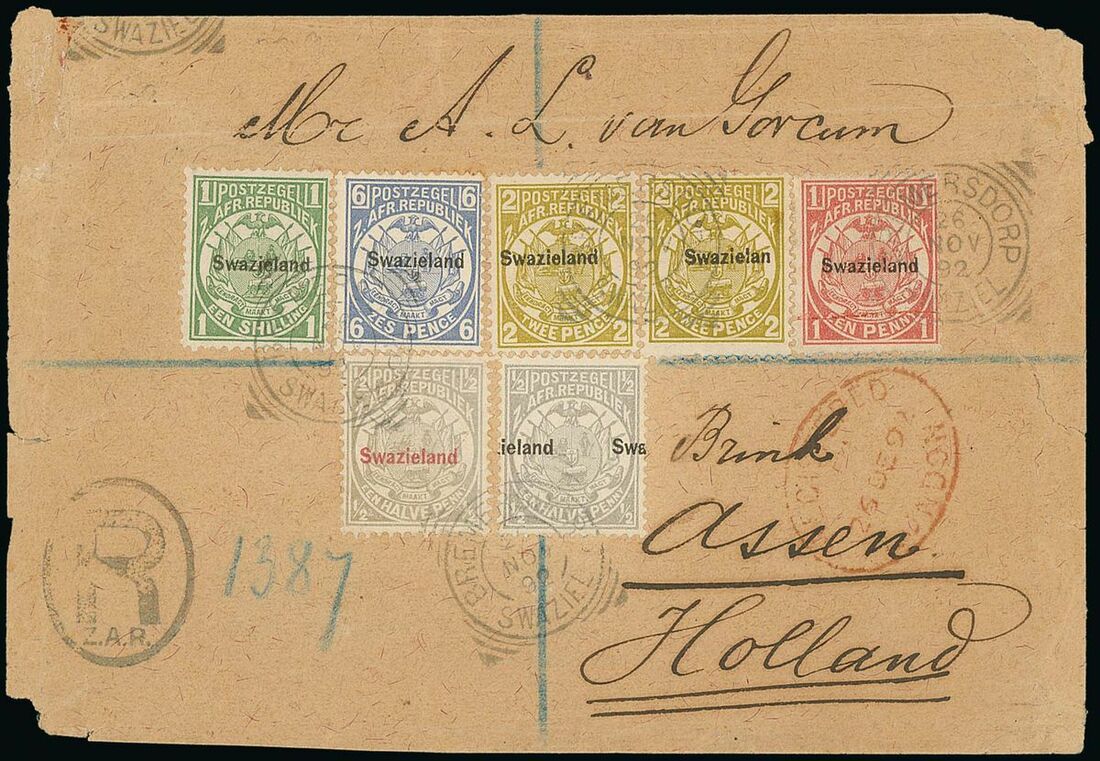 SWAZIEL
Mr A. L. van Gorcum
1 POSTZEGEL 1
AFR. REPUBLIEK
Swazieland
EENDRAGT MAAKT MAGT
1 EEN SHILLING 1
6 POSTZEGEL 6
Z. AFR. REPUBLIEK
Swazieland
EENDRAGT MAAKT MAGT
6 ZES PENCE 6
2 POSTZEGEL 2
Z. AFR. REPUBLIEK
Swazieland
EENDRAGT MAAKT MAGT
2 TWEE PENCE 2
2 POSTZEGEL 2
Z. AFR. REPUBLIEK
Swazielan
MAAKT
2 TWEE PENCE 2
1 POSTZEGEL 1
Z. AFR. REPUBLIEK
Swazieland
EENDRAGT MAAKT MAGT
1 EEN PENNY 1
ERSDORP
26
NOV
92
ZIEL
½ POSTZEGEL ½
Z. AFR. REPUBLIEK
Swazieland
EENDRAGT MAAKT MAGT
½ EEN HALVE PENNY ½
½ POSTZEGEL ½
Z. AFR. REPUBLIEK
ieland Swa
MAAKT
½ EEN HALVE PENNY ½
SWAZIEL
Brink
Assen
Holland
LONDON
26 DE 92
R
Z.A.R.
1387
NOV
92
SWAZIEL